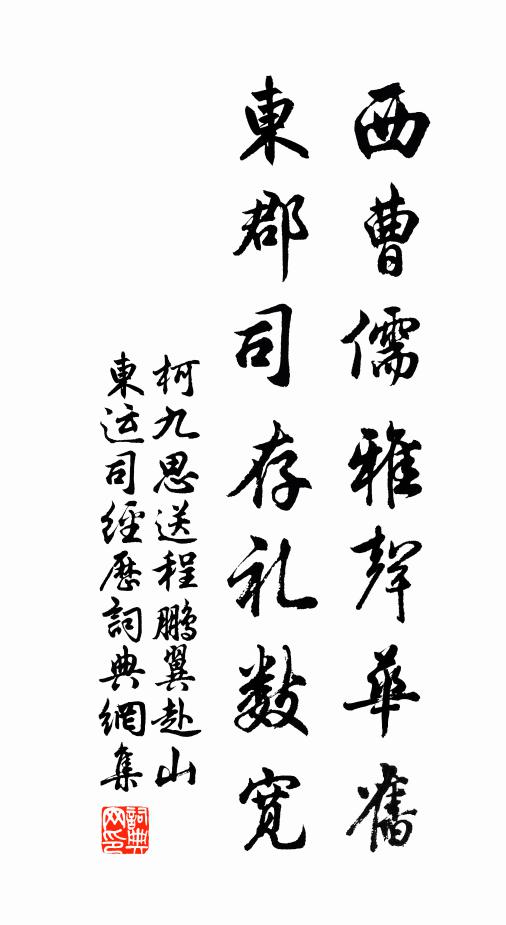 西曹儒雅聲華舊
東郡司存礼數寬
柯九思送程鹏翼赴山
東运司經歷詞典網集
詞典网印